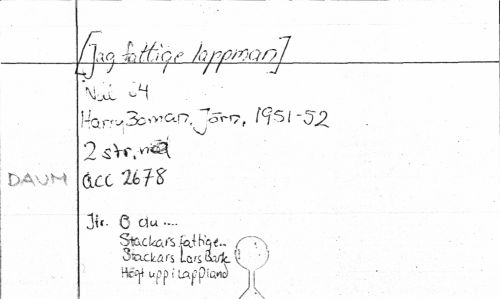 [Jag fattige lappman]
Nil 34
Harry Boman, Jörn, 1951-52
2 str,
DAUM acc 2678
Jfr. O du ....
Stackars fattige..
Stackars Lars Barte
Högt uppi Lappland